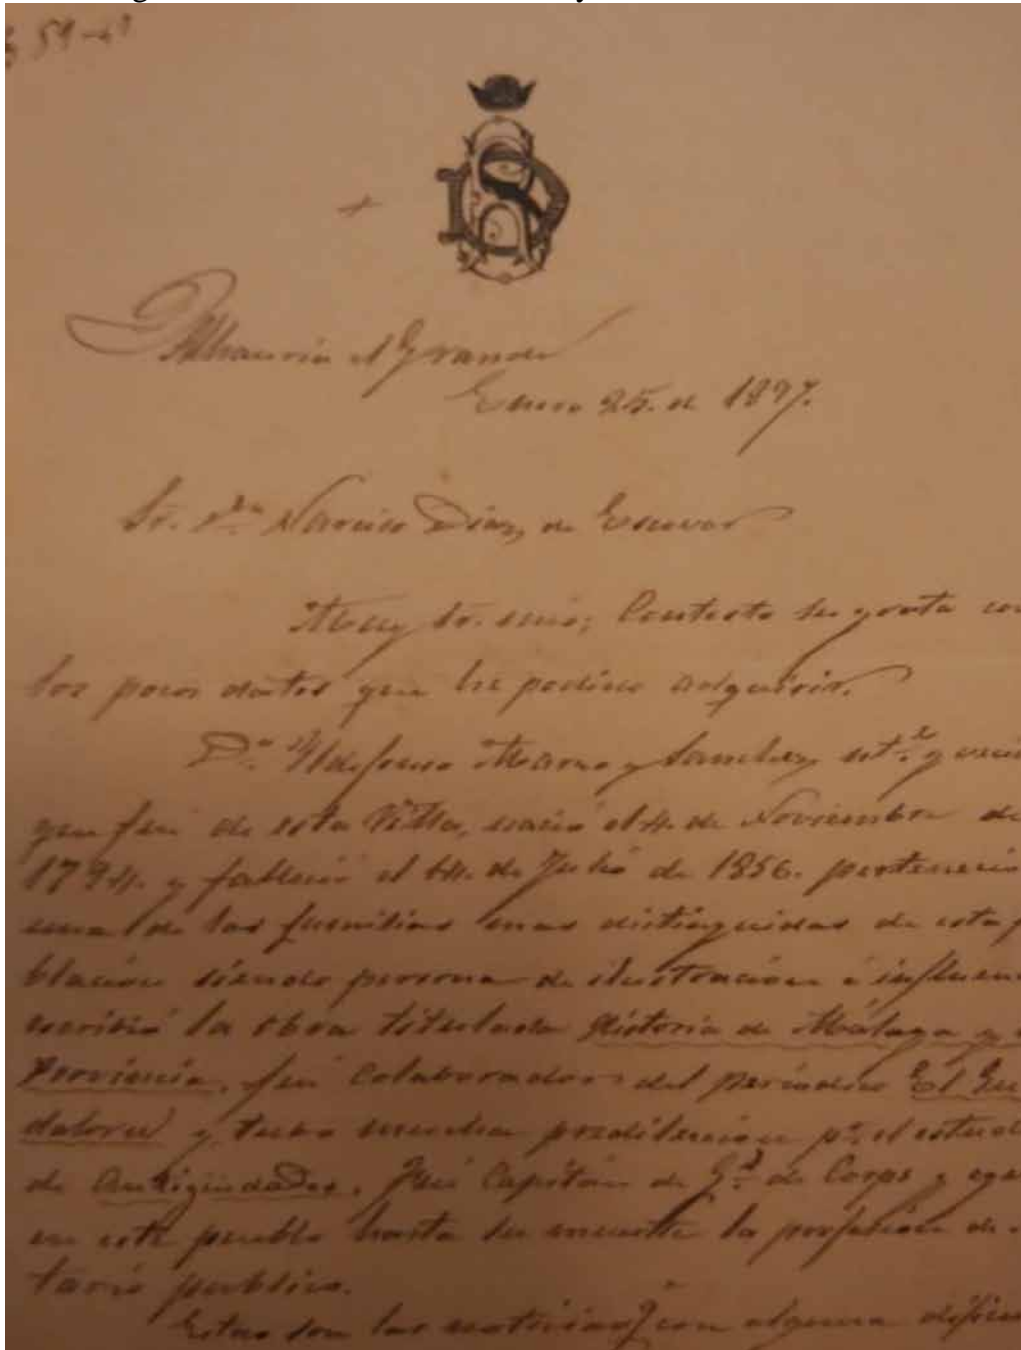 59-
Alhaurín el Grande
Enero 25. de 1897.
Sr. Dn. Narciso Diaz, de Escovar
Muy Sr. mio; Contesto su grata con
los pocos datos que he podido adquirir.
Dn. Ildefonso Marzo y Sanchez, nt.l y vecin
que fué de esta Villa, nació el 4. de Noviembre de
1794. y falleció el 14. de Julio de 1856. perteneció
una de las familias mas distinguidas de esta p
blacion siendo persona de ilustracion é influen
escribió la obra titulada Historia de Málaga y
Provincia, fué colaborador del periodico El Gu
dalorce y tuvo mucha predileccion pr. el estud
de Antigüedades. Fué Capitán de Gd. de Corps y ege
en este pueblo hasta su muerte la profesión de
tario público.
Estas son las noticias q. con alguna dificu